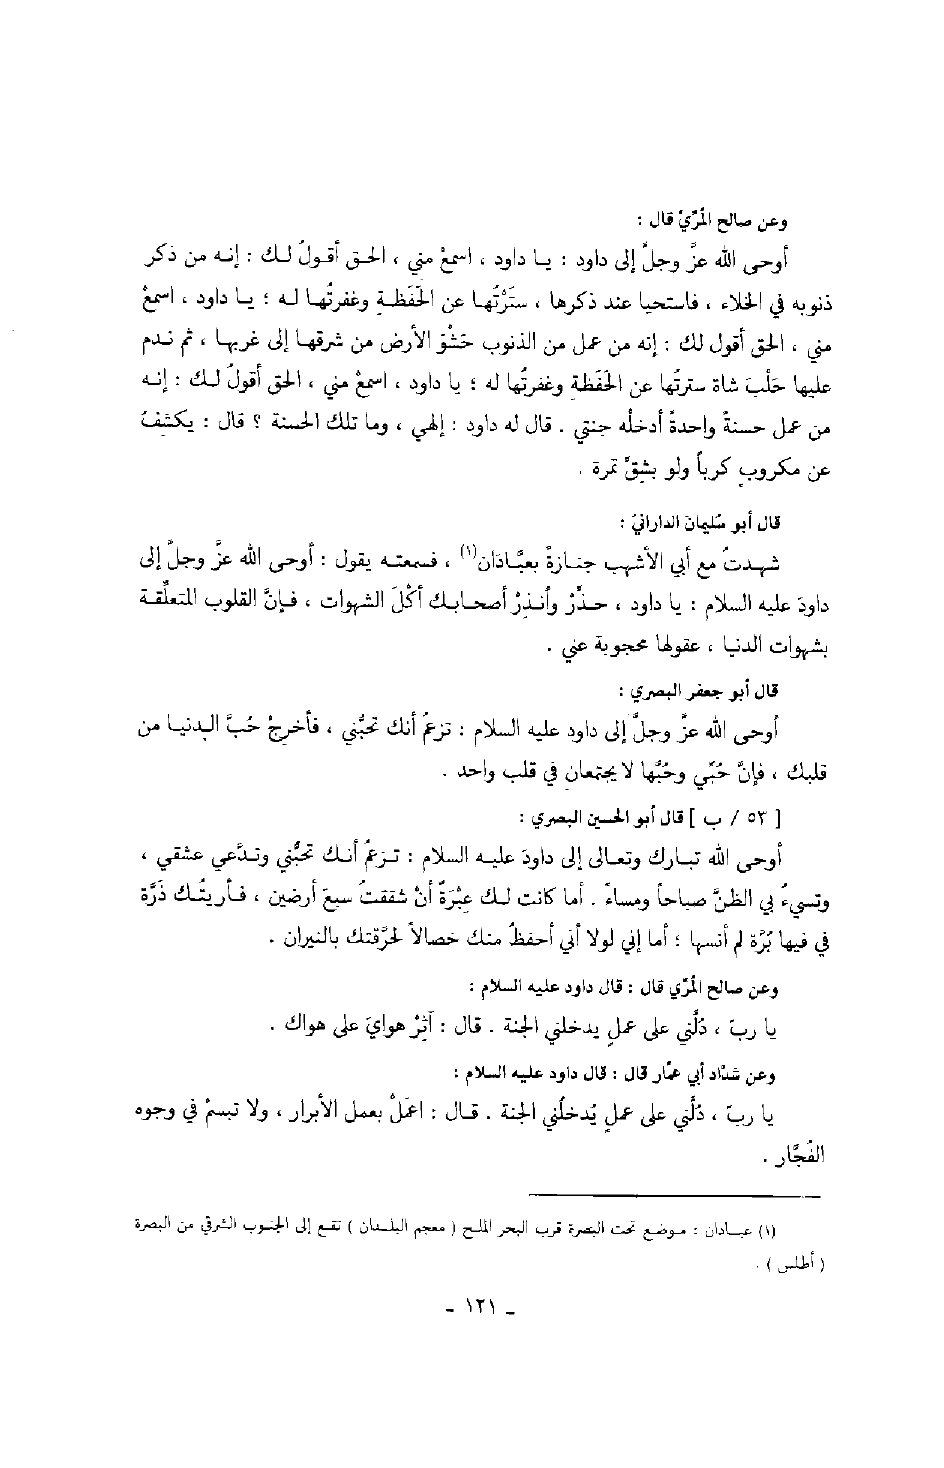 وعن صالح المُرّيّ قال :
أوحى الله عزَّ وجلَّ إلى داود : يا داود ، اسمعْ مني ، الحق أقولُ لك : إنه من ذكر
ذنوبه في الخلاء ، فاستحيا عند ذكرها ، ستَرْتُها عن الحَفَظَةِ وغفرتُها له ؛ يا داود ، اسمعْ
مني ، الحق أقول لك : إنه من عمل من الذنوب حَشْوَ الأرض من شرقها إلى غربها ، ثم ندم
عليها حَلْبَ شاة سترتُها عن الحَفَظَةِ وغفرتُها له ؛ يا داود ، اسمعْ مني ، الحق أقولُ لك : إنه
من عمل حسنةً واحدةً أدخلُه جنتي . قال له داود : إلهي ، وما تلك الحسنة ؟ قال : يكشفُ
عن مكروبٍ كرباً ولو بشِقِّ تمرة .
قال أبو سُليمان الدارانيّ :
شهدتُ مع أبي الأشهب جنازةً بعبَّادَان(١) ، فسمعته يقول : أوحى الله عزَّ وجلَّ إلى
داودَ عليه السلام : يا داود ، حذّرْ وأنذِرْ أصحابك أكْلَ الشهوات ، فإنَّ القلوب المتعلّقة
بشهوات الدنيا ، عقولها محجوبة عني .
قال أبو جعفر البصري :
أوحى الله عزَّ وجلَّ إلى داود عليه السلام : تزعمُ أنك تحبُّني ، فأخرِجْ حُبَّ الدنيا من
قلبك ، فإنَّ حُبّي وحُبَّها لا يجتمعانِ في قلب واحد .
[ ٥٣ / ب ] قال أبو الحسين البصري :
أوحى الله تبارك وتعالى إلى داودَ عليه السلام : تزعمُ أنك تحبُّني وتدَّعي عشقي ،
وتسيءُ بي الظنَّ صباحاً ومساءً . أما كانت لك عِبْرَةٌ أنْ شققتُ سبعَ أرضين ، فأريتُك ذَرَّة
في فيها بُرَّة لم أنسها ؛ أما إني لولا أني أحفظُ منك خصالاً لحرّقتك بالنيران .
وعن صالح المُرّي قال : قال داود عليه السلام :
يا ربّ ، دُلَّني على عملٍ يدخلني الجنة . قال : آثِرْ هوايَ على هواك .
وعن شدَّاد أبي عمَّار قال : قال داود عليه السلام :
يا ربّ ، دُلَّني على عملٍ يُدخلُني الجنة . قال : اعمَلْ بعمل الأبرار ، ولا تبسمْ في وجوه
الفُجَّار .
(١) عبادان : موضع تحت البصرة قرب البحر الملح ( معجم البلدان ) تقع إلى الجنوب الشرقي من البصرة
( أطلس ) .
ـ ١٢١ ـ